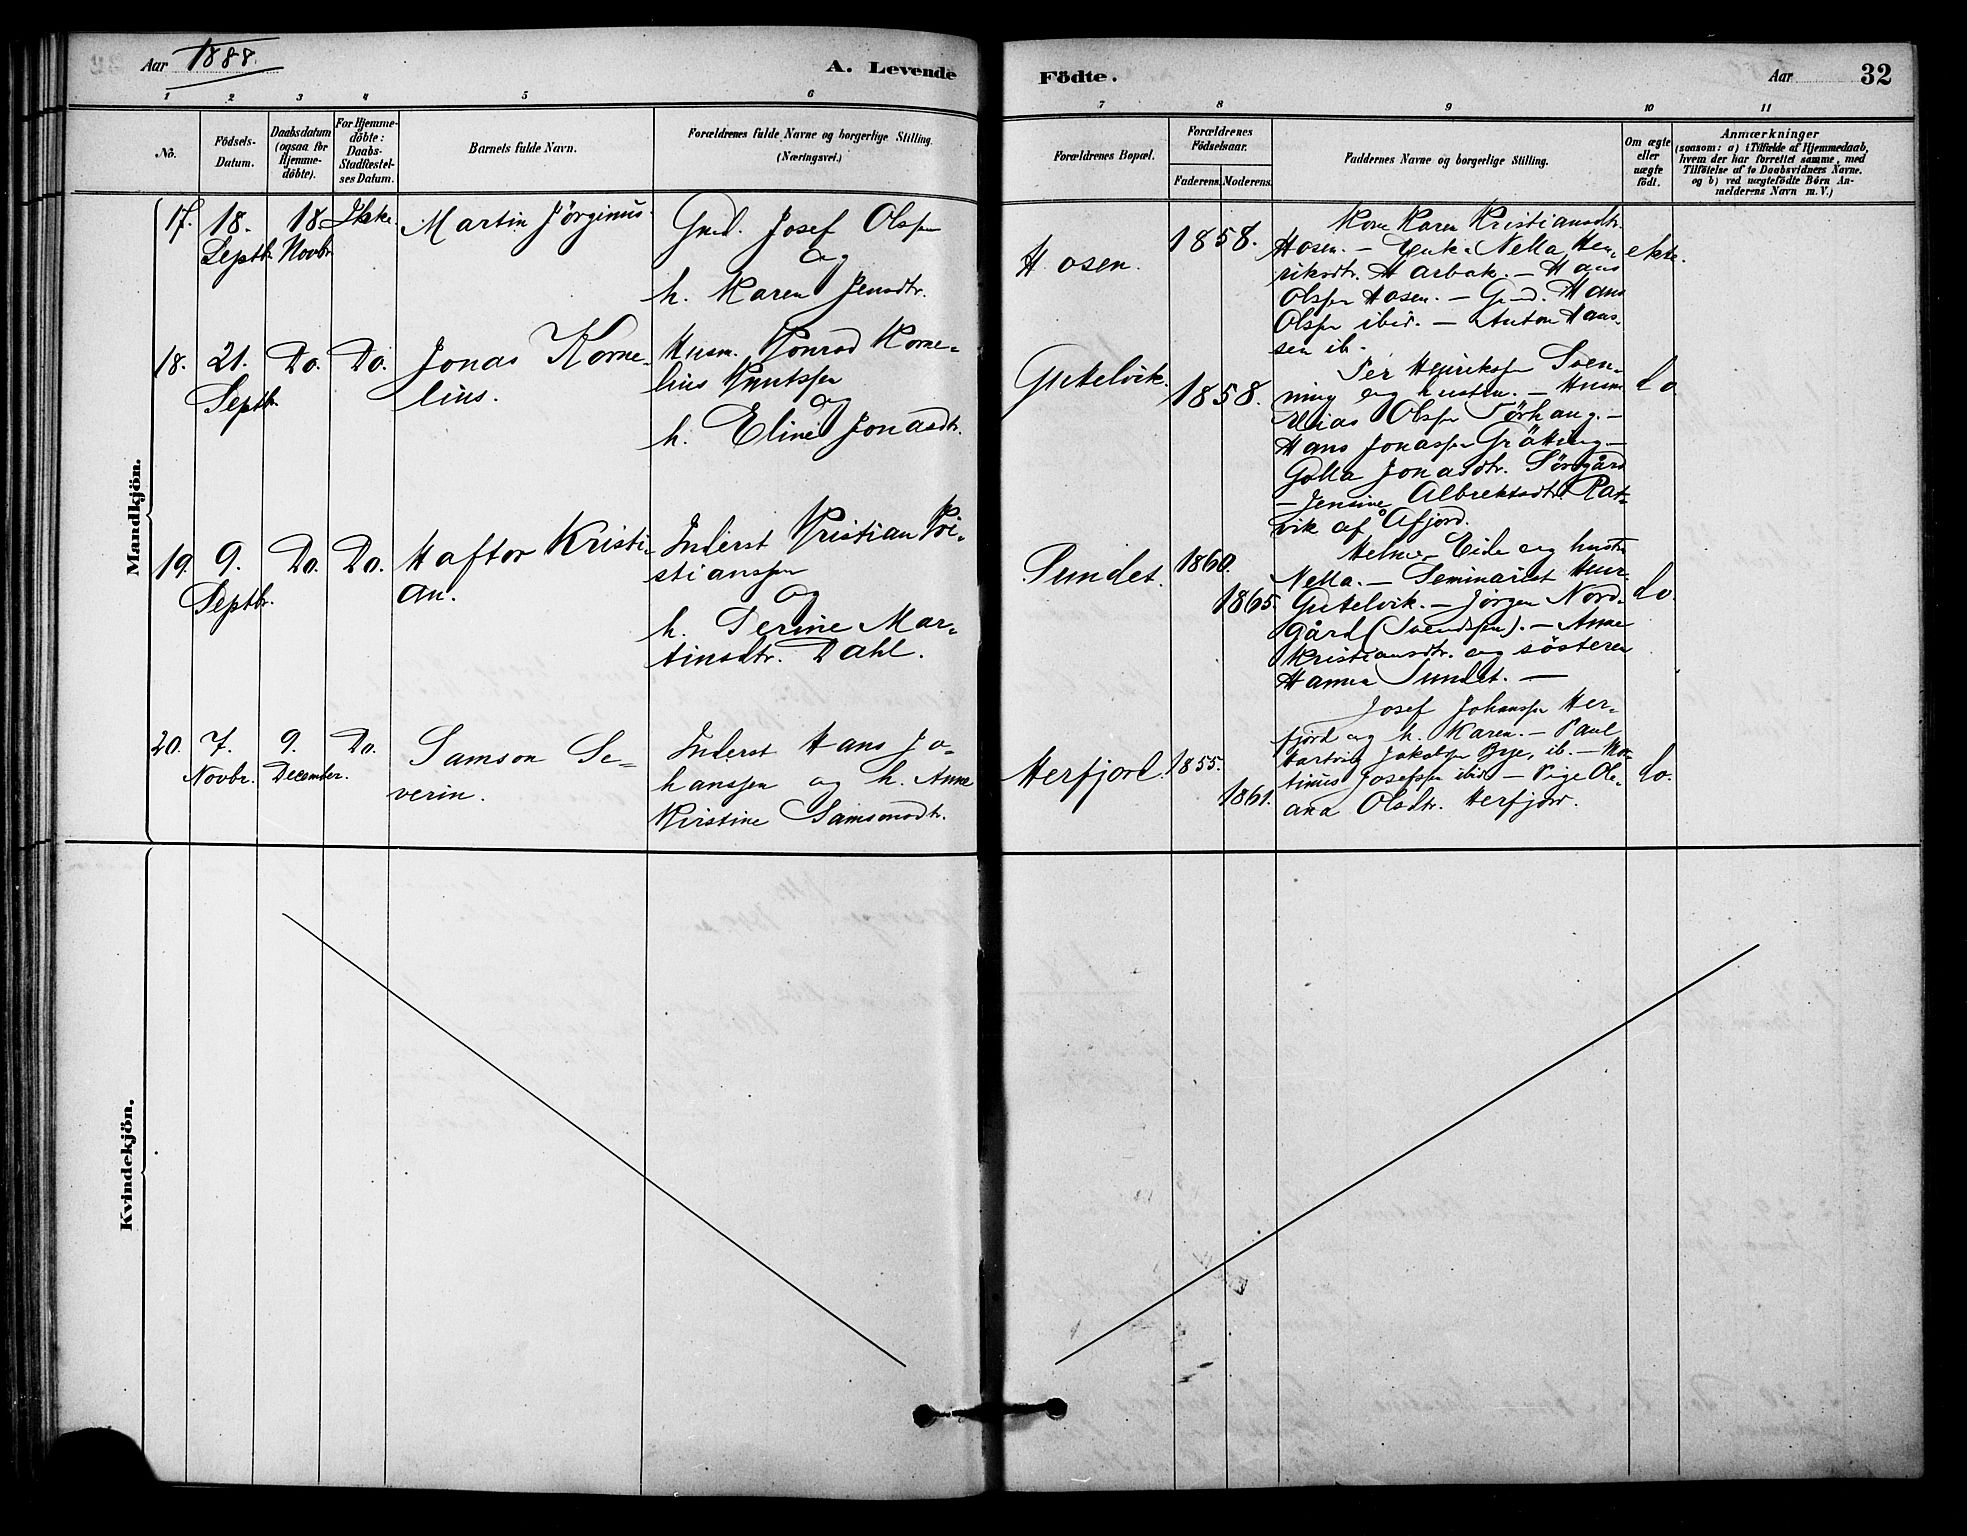 Aar 1888.
A. Levende
Födte.
Aar
32
1 2 3 4 5 6 7 8 9 10 11
No.
Födsels-
Datum.
Daabsdatum
(ogsaa for
Hjemme-
döbte).
For Hjemme-
döbte:
Daabs-
Stadfæstel-
ses Datum.
Barnets fulde Navn.
Forældrenes fulde Navne og borgerlige Stilling.
(Næringsvei.)
Forældrenes Bopæl.
Forældrenes
Födselsaar.
Faderens. Moderens.
Faddernes Navne og borgerlige Stilling.
Om ægte
eller
uægte
födt.
Anmærkninger
(saasom: a) i Tilfælde af Hjemmedaab,
hvem der har forrettet samme, med
Tilföielse af to Daabsvidners Navne.
og b) ved uægtefödte Börn An-
melderens Navn m. V.)
Mandkjön.
17.
18.
Septbr.
18
Novbr.
Ikke.
Martin Jörginus.
Gmd. Josef Olssen
og
h. Karen Jensdtr.
Hosen.
1858.
Kone Karen Kristiansdtr.
Hosen. - Enke Nella Hen-
riksdtr. Harbak. - Hans
Olssen Hosen. - Gmd. Hans
Olssen ibid. - Anton Hans-
sen ib.
ekte.
18.
21.
Septbr.
Do.
Do.
Jonas Korne-
lius.
Husm. Konrad Korne-
lius Knutssen
og
h. Eline Jonasdtr.
Guttelvik.
1858.
Per Henrikssen Sven-
ning og hustru. - Husm
Elias Olssen Törhaug. -
Hans Jonassen Gräkling -
Golla Jonasdtr. Sörgård
- Jensine Albrektsdtr. Rat-
vik af Åfjord.
do.
19.
9.
Septbr.
Do.
Do.
Haftor Kristi-
an.
Inderst Kristian Kri-
stianssen
og
h. Serine Mar-
tinsdtr. Dahl.
Sundet.
1860.
1865.
Helmer Eide og hustru
Nella. - Seminarist
Guttelvik. - Jörgen Nord-
gård (Svendssen). - Anne
Kristiansdtr. og sösteren
Hanna Sundet. -
do.
20.
7.
Novbr.
9.
December.
Do.
Samson Se-
verin.
Inderst Hans Jo-
hanssen og h. Anne
Kirstine Samsonsdtr.
Herfjord.
1855.
1861.
Josef Johanssen Her-
fjord og h. Karen. - Paul
Hartvig Jakobssen Bye, ib. - Mar-
tinus Josefssen ibid - Pige Ole-
ana Olsdtr. Herfjord.
do.
Kvindekjön.